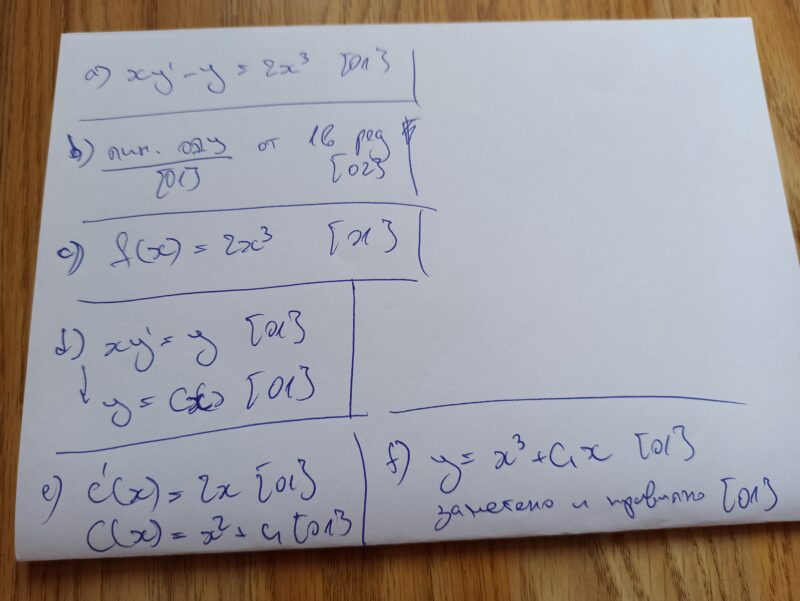 a) xy' - y = 2x³ [01}
b) лин. ОДУ от 1в ред
[01} [02}
c) f(x) = 2x³ [01}
d) xy' = y [01}
↓ y = Cx [01}
e) C'(x) = 2x [01}
C(x) = x² + C₁ [01}
f) y = x³ + C₁x [01}
заметено и правилно [01}